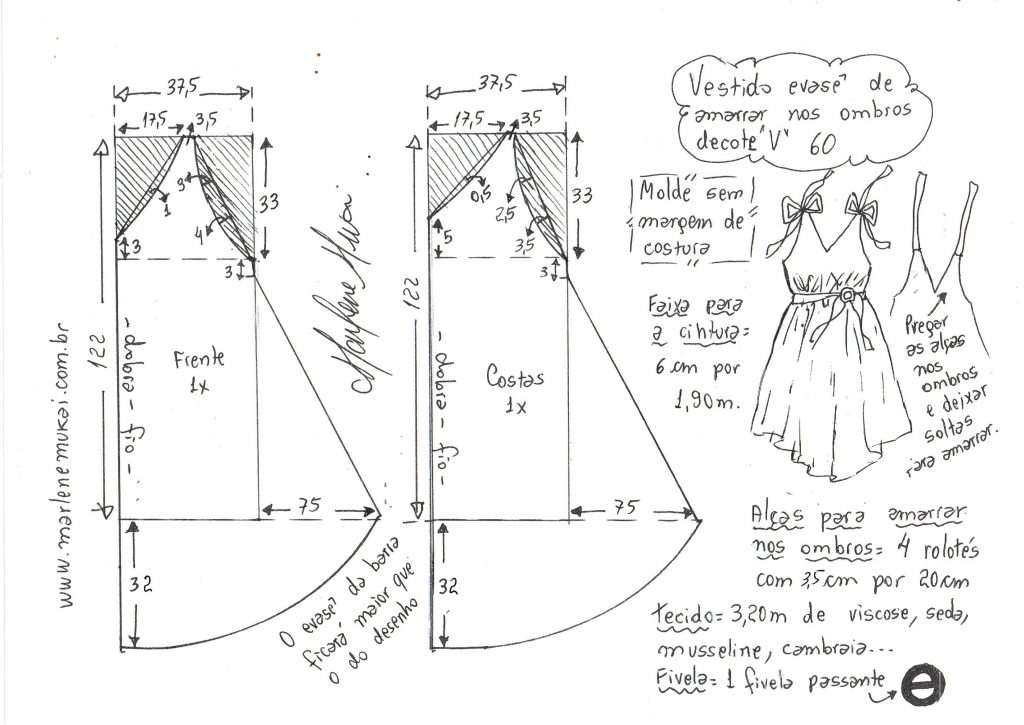 37,5
17,5
3,5
3
1
4
3
33
3
122
- dobra - fio -
Frente
1x
75
32
www.marlenemukai.com.br
Marlene Mukai
O evasê da barra
ficará maior que
o do desenho
37,5
17,5
3,5
0,5
2,5
3,5
5
33
3
122
- dobra - fio -
Costas
1x
75
32
Vestido evasê de
amarrar nos ombros
decote "V" 60
Molde sem
margem de
costura
Faixa para
a cintura=
6 cm por
1,90m.
Pregar
as alças
nos
ombros
e deixar
soltas
para amarrar.
Alças para amarrar
nos ombros= 4 rolotés
com 3,5cm por 20cm
Tecido= 3,20m de viscose, seda,
musseline, cambraia...
Fivela= 1 fivela passante